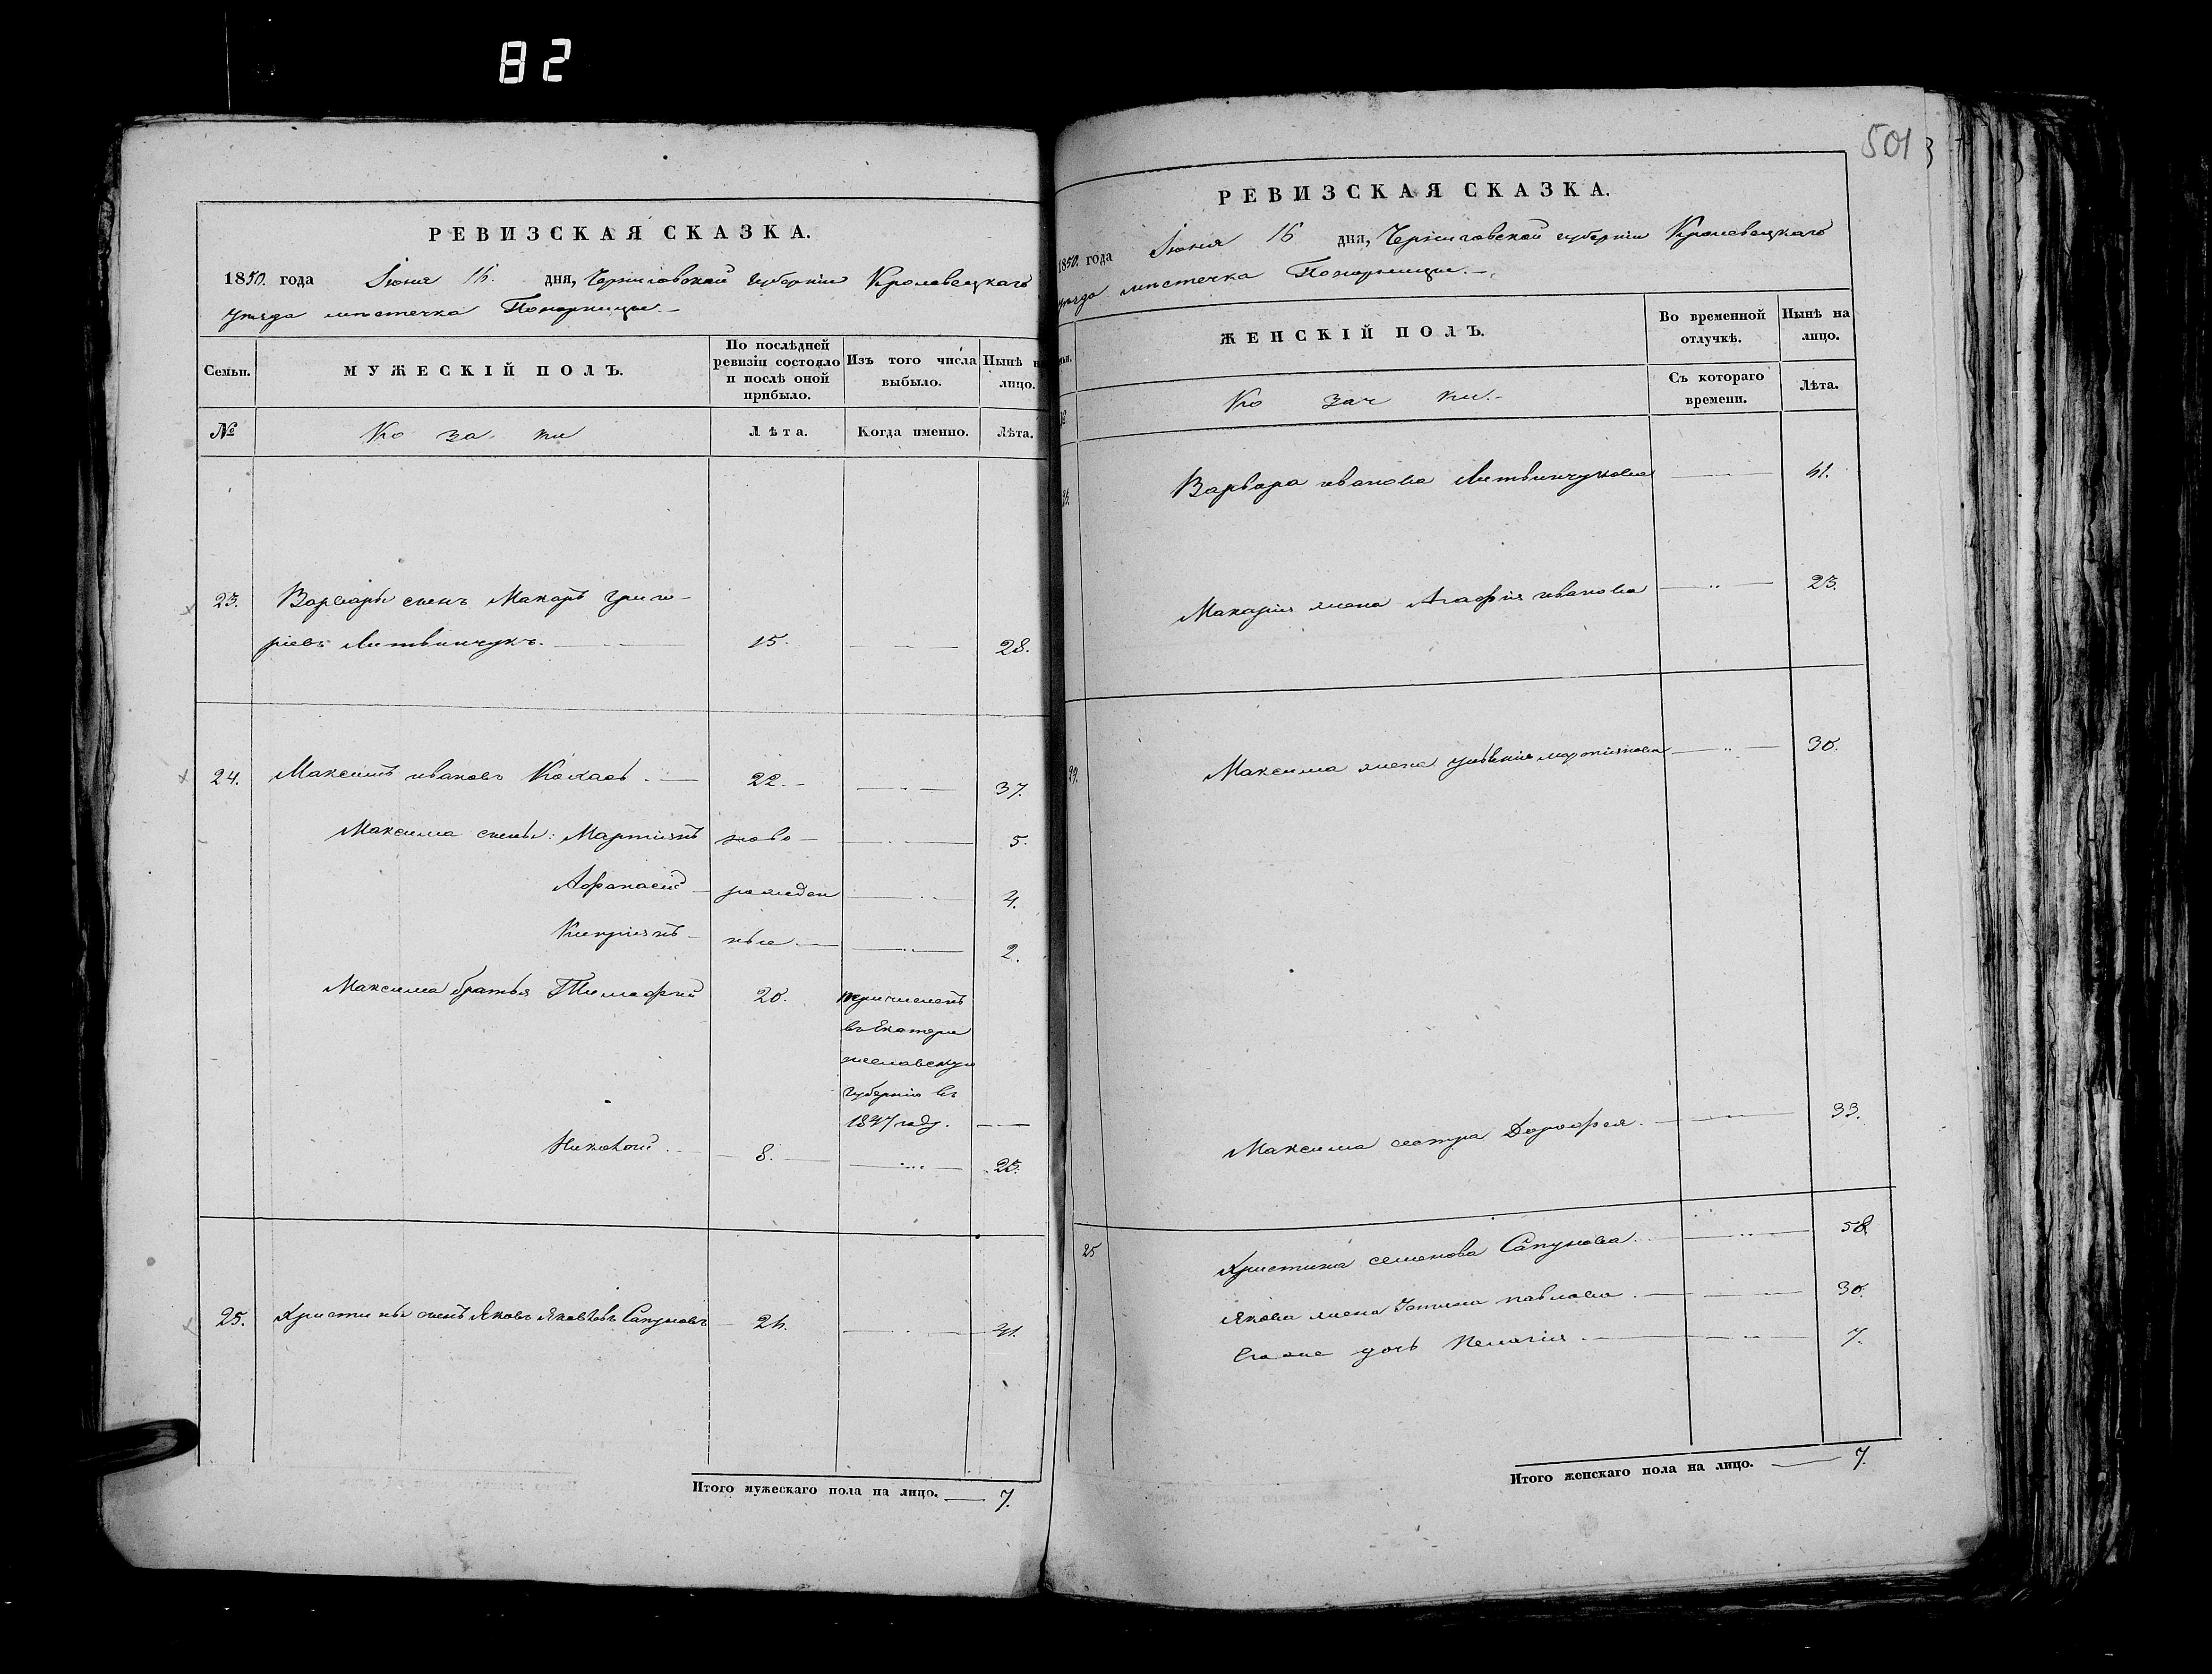 82
501
РЕВИЗСКАЯ СКАЗКА.
1850. года Іюня 16. дня, Черниговской губерніи Кролевецкаго
уѣзда мѣстечка Понорницы.
Семьи.
МУЖЕСКІЙ ПОЛЪ.
По послѣдней ревизіи состояло и послѣ оной прибыло.
Изъ того числа выбыло.
Нынѣ на лицо.
№
Козаки
Лѣта.
Когда именно.
Лѣта.
23. Варвары сынъ Макаръ Григо-
ріевъ Литвинчукъ. 15. 28.
24. Максимъ Ивановъ 22. 37.
Максима сыны: Мартинъ ново 5.
Афанасій рожден 4.
Кипріянъ ные 2.
Максима братья Тимофей 20. причисленъ
въ Екатери
нославскую
губернію въ
1847 году.
Николай 8.
25. Христины сынъ Яковъ Яковлевъ Сапуновъ
Итого мужескаго пола на лицо. 7.
РЕВИЗСКАЯ СКАЗКА.
1850. года Іюня 16 дня, Черниговской губерніи Кролевецкаго
уѣзда мѣстечка Понорницы.
ЖЕНСКІЙ ПОЛЪ.
Во временной отлучкѣ.
Нынѣ на лицо.
Козачки.
Съ котораго времени.
Лѣта.
Варвара Иванова Литвинчукова
Макарія жена Агафія Иванова 23.
Максима жена Мартинова 30.
Максима сестра Дорофея. 33.
25 Христина Семенова Сапунова 58
Якова жена Павлова 30.
Его же дочь Пелагія 7.
Итого женскаго пола на лицо. 7.